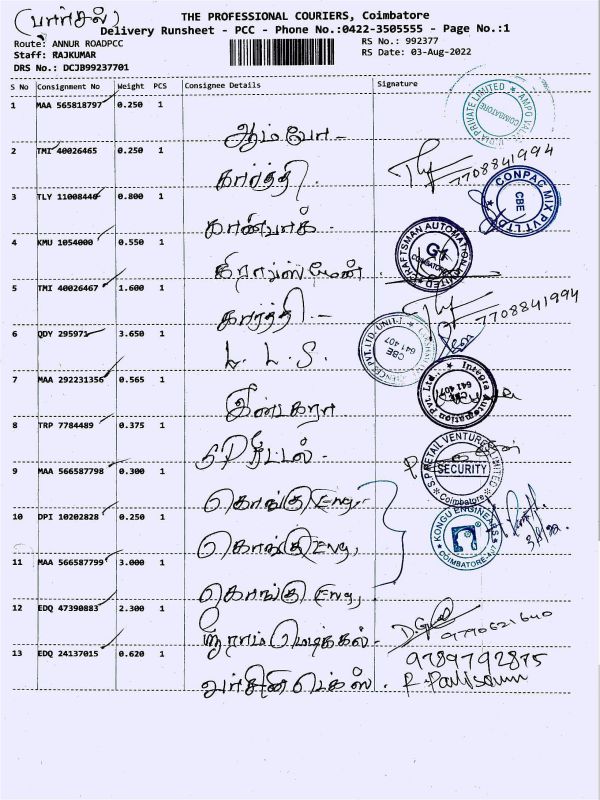 (பார்சல்)
THE PROFESSIONAL COURIERS, Coimbatore
Delivery Runsheet - PCC - Phone No.:0422-3505555 - Page No.:1
Route: ANNUR ROADPCC RS No.: 992377
Staff: RAJKUMAR RS Date: 03-Aug-2022
DRS No.: DCJB99237701
S No Consignment No Weight PCS Consignee Details Signature
1 MAA 565818797 0.250 1 ஆம்வோ -
2 TMI 40026465 0.250 1 கார்த்தி. 7708841994
CONPAC MIX PVT LTD. CBE
3 TLY 11008440 0.800 1 கான்பாக் -
4 KMU 1054000 0.550 1 கிராப்ஸ்மேன் . KRAFTSMAN AUTOMATION LIMITED COIMBATORE
5 TMI 40026467 1.600 1 கார்த்தி. - 7708841994
6 QDY 295971 3.650 1 L. L. S. CBE 641 407
7 MAA 292231356 0.565 1 இன்டகரா Integra Automation Pvt. Ltd., 641 407
8 TRP 7784489 0.375 1 SP ரீட்டல் - S.P RETAIL VENTURES LIMITED SECURITY Coimbatore
9 MAA 566587798 0.300 1 கொங்கு Eng,
10 DPI 10202828 0.250 1 கொங்கு Eng, KONGU ENGINEERS COIMBATORE-407
11 MAA 566587799 3.000 1 கொங்கு Eng,
12 EDQ 47390883 2.300 1 ஸ்ரீராம் மெடிக்கல் -
13 EDQ 24137015 0.620 1 வர்சினி டெக்ஸ் . 9789792875